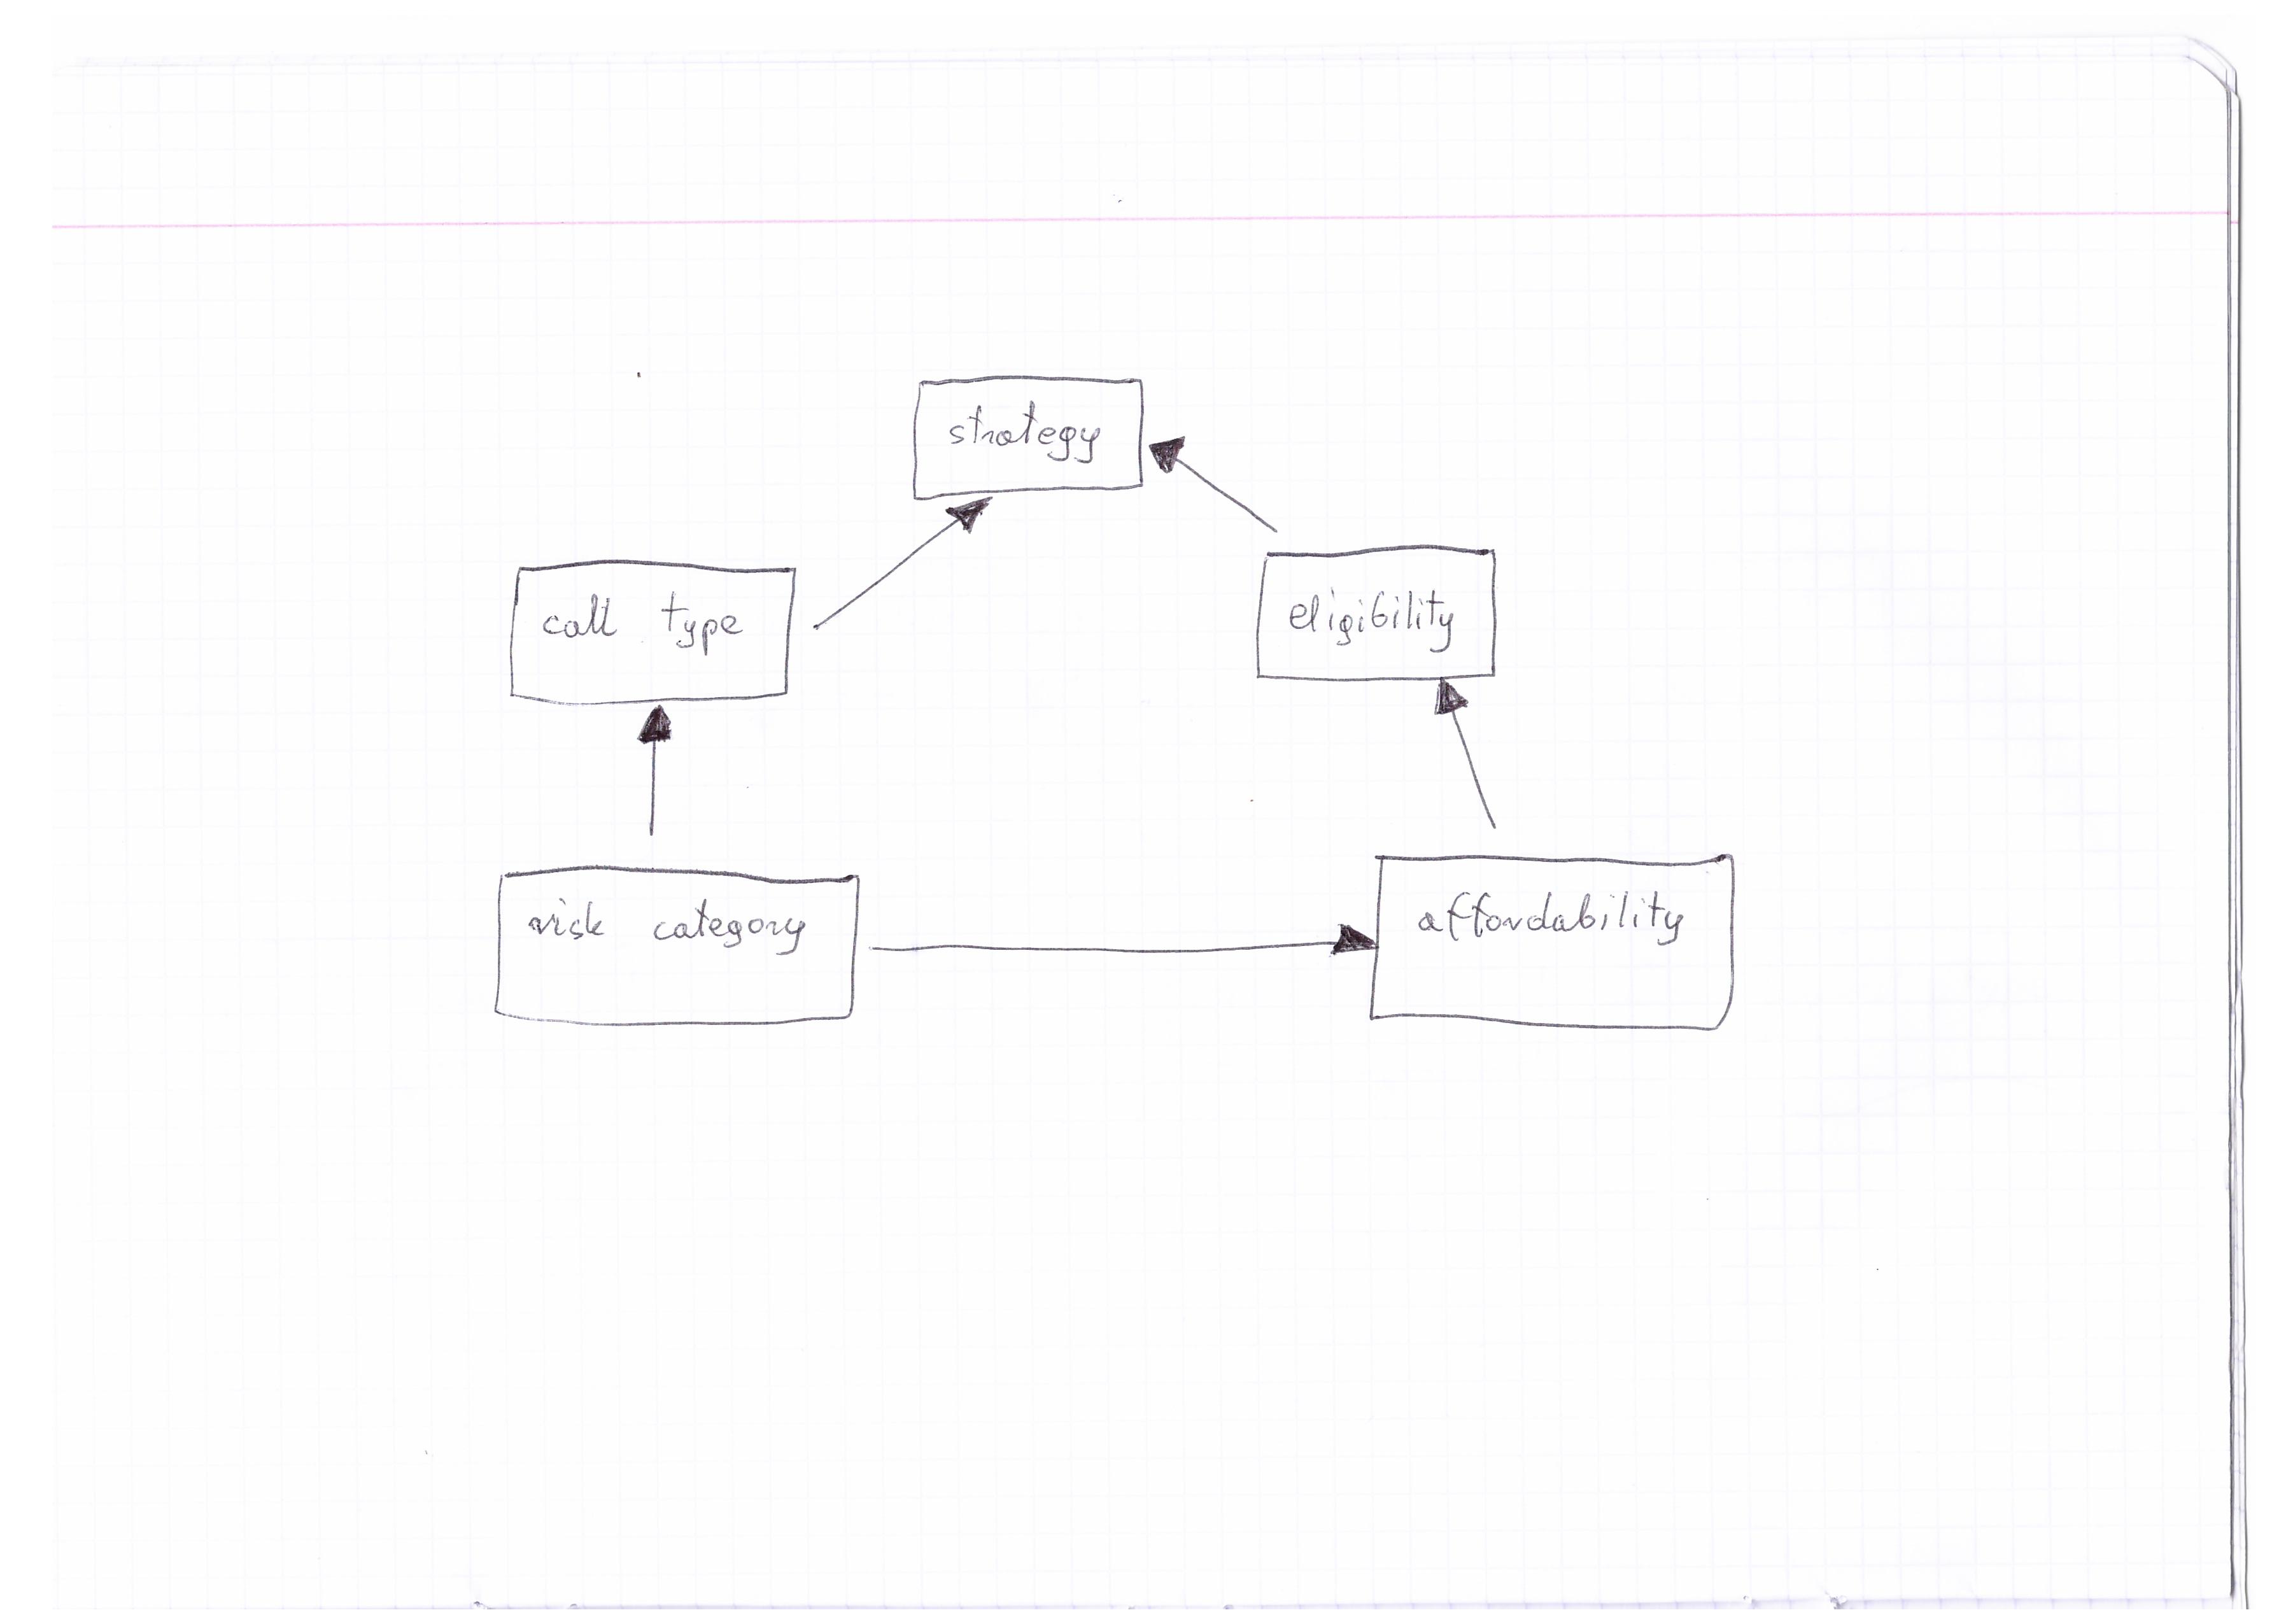 strategy
call type
eligibility
risk category
affordability